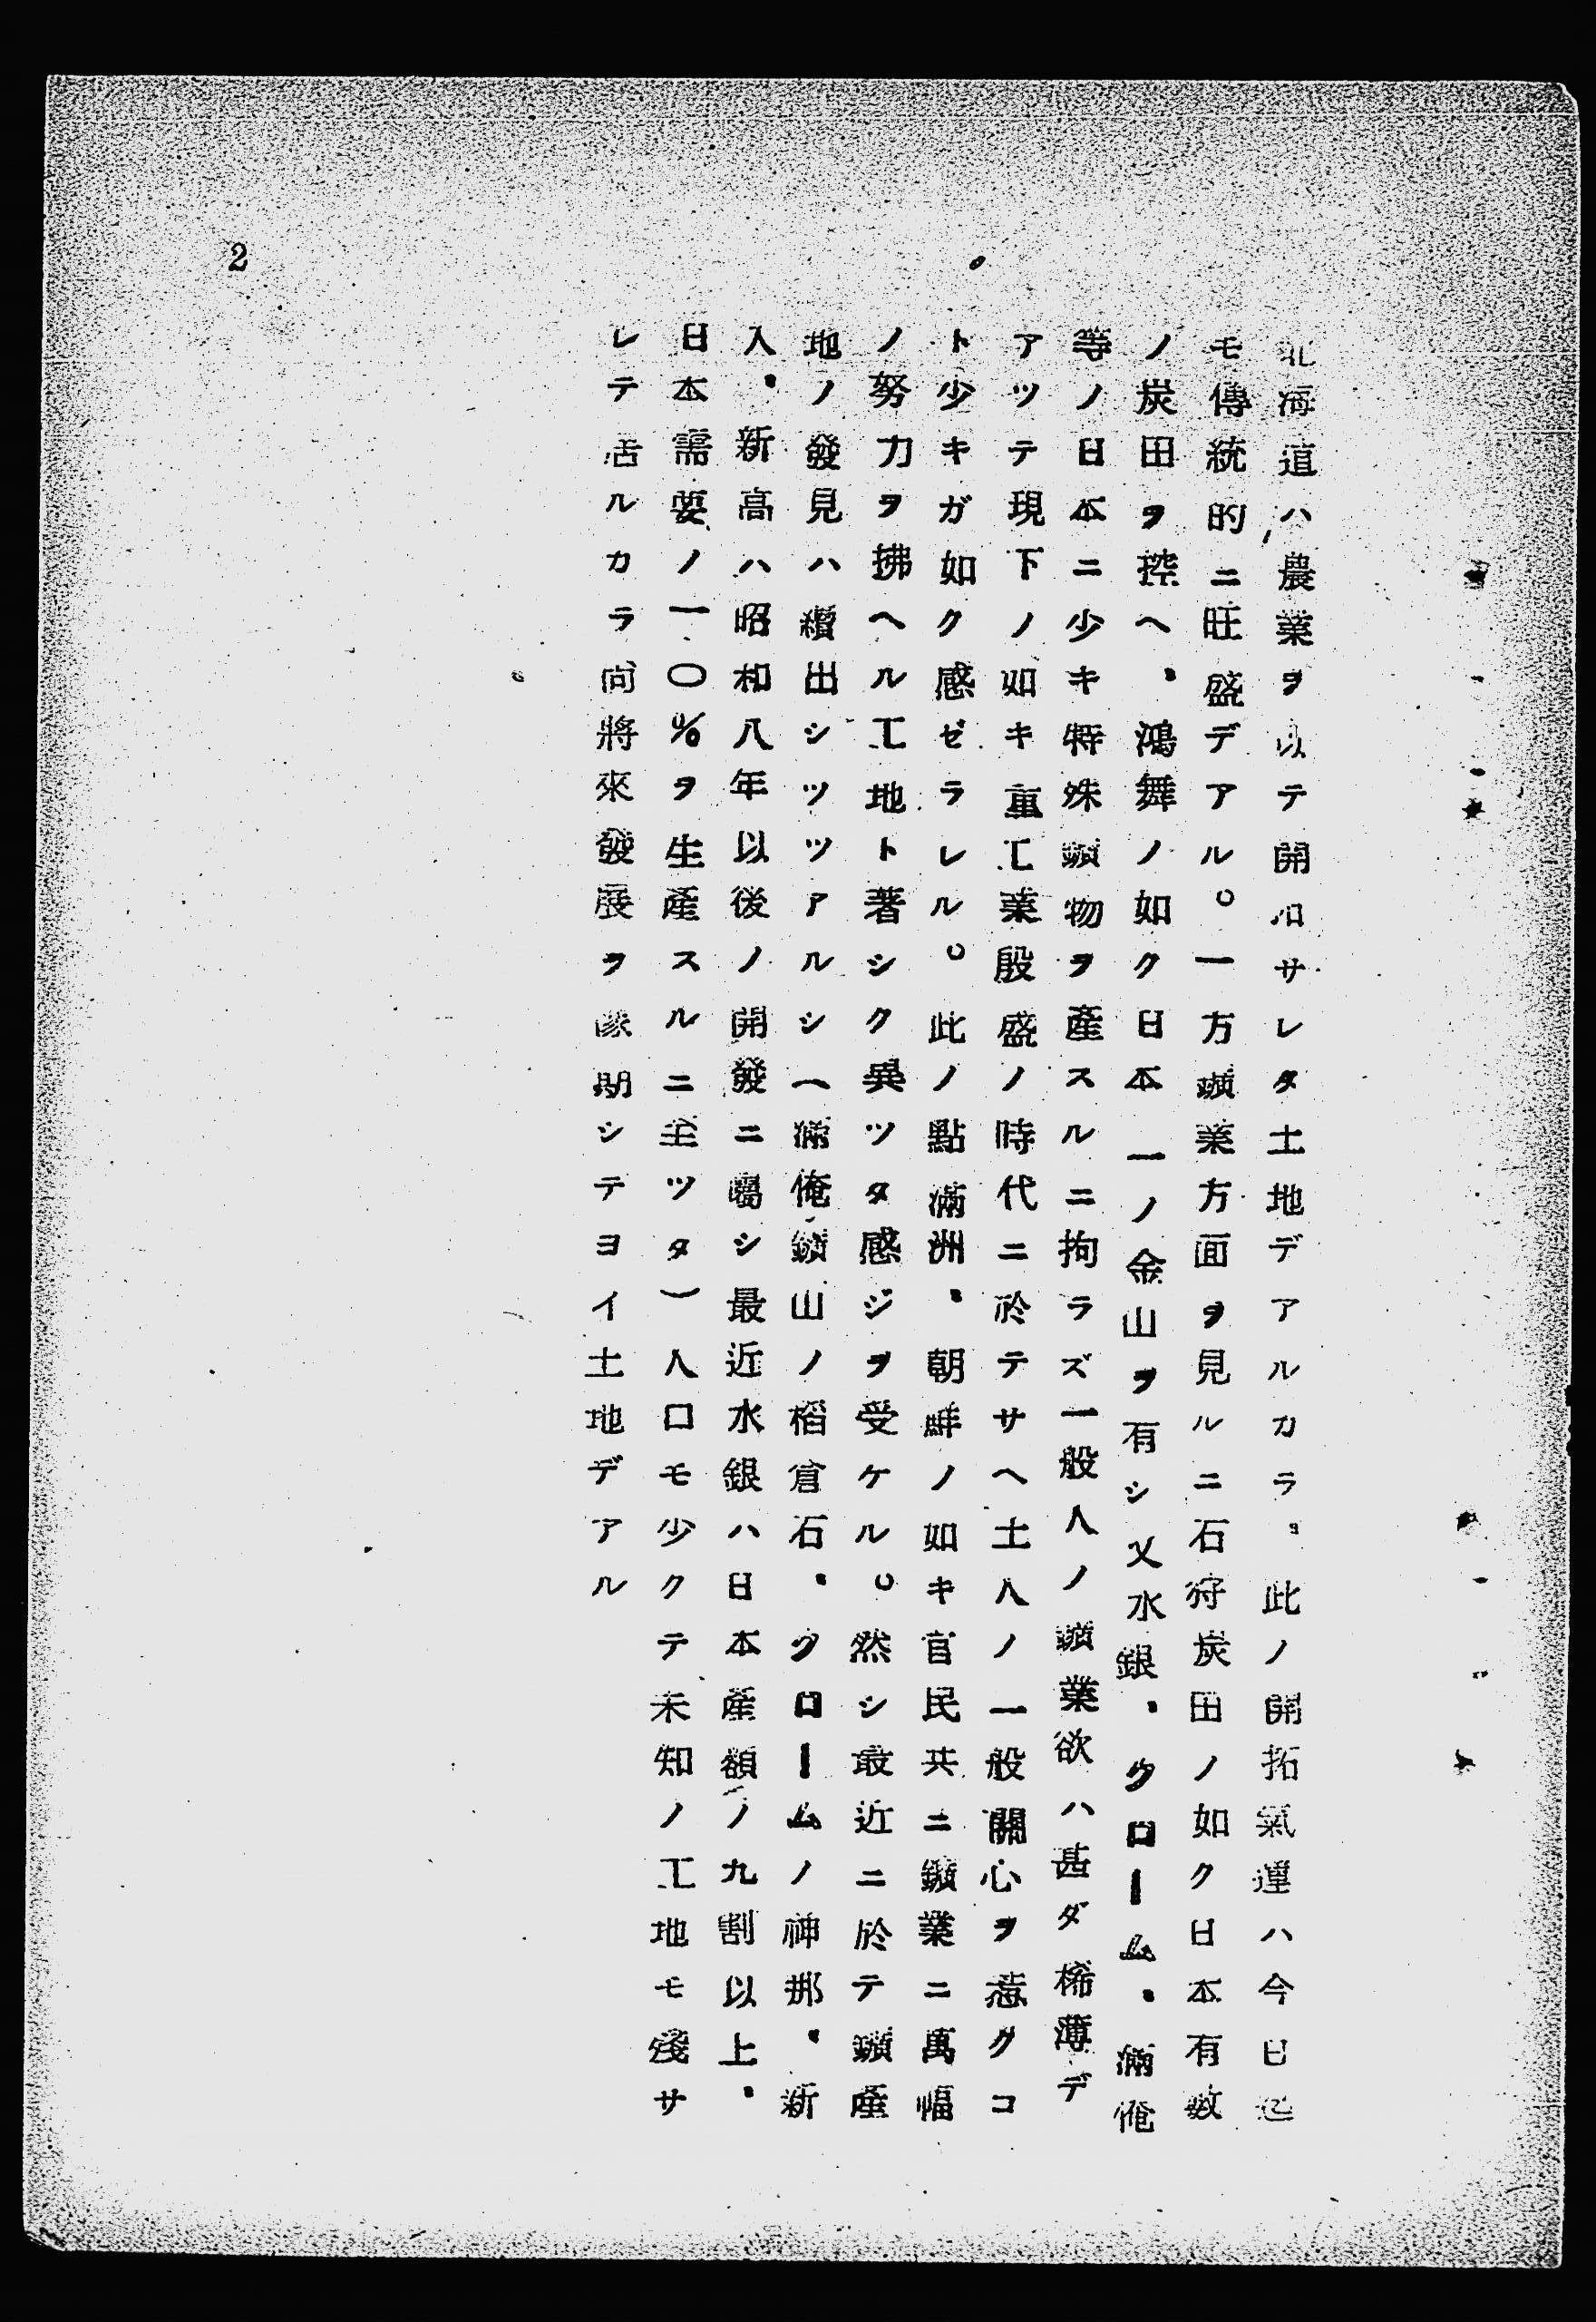 北海道ハ農業ヲ以テ開拓サレタ土地デアルカラ、此ノ開拓氣運ハ今日迄
モ傳統的ニ旺盛デアル。一方鑛業方面ヲ見ルニ石狩炭田ノ如ク日本有數
ノ炭田ヲ控ヘ、鴻舞ノ如ク日本一ノ金山ヲ有シ又水銀、クローム、滿俺
等ノ日本ニ少キ特殊鑛物ヲ產スルニ拘ラズ一般人ノ鑛業欲ハ甚ダ稀薄デ
アツテ現下ノ如キ重工業殷盛ノ時代ニ於テサヘ土人ノ一般關心ヲ惹クコ
ト少キガ如ク感ゼラレル。此ノ點滿洲、朝鮮ノ如キ官民共ニ鑛業ニ萬幅
ノ努力ヲ拂ヘル工地ト著シク異ツタ感ジヲ受ケル。然シ最近ニ於テ鑛產
地ノ發見ハ續出シツツアルシ(滿俺鑛山ノ稻倉石、クロームノ神那、新
入、新高ハ昭和八年以後ノ開發ニ屬シ最近水銀ハ日本產額ノ九割以上、
日本需要ノ一〇%ヲ生產スルニ至ツタ)人口モ少クテ未知ノ工地モ殘サ
レテ居ルカラ尚將來發展ヲ豫期シテヨイ土地デアル
2